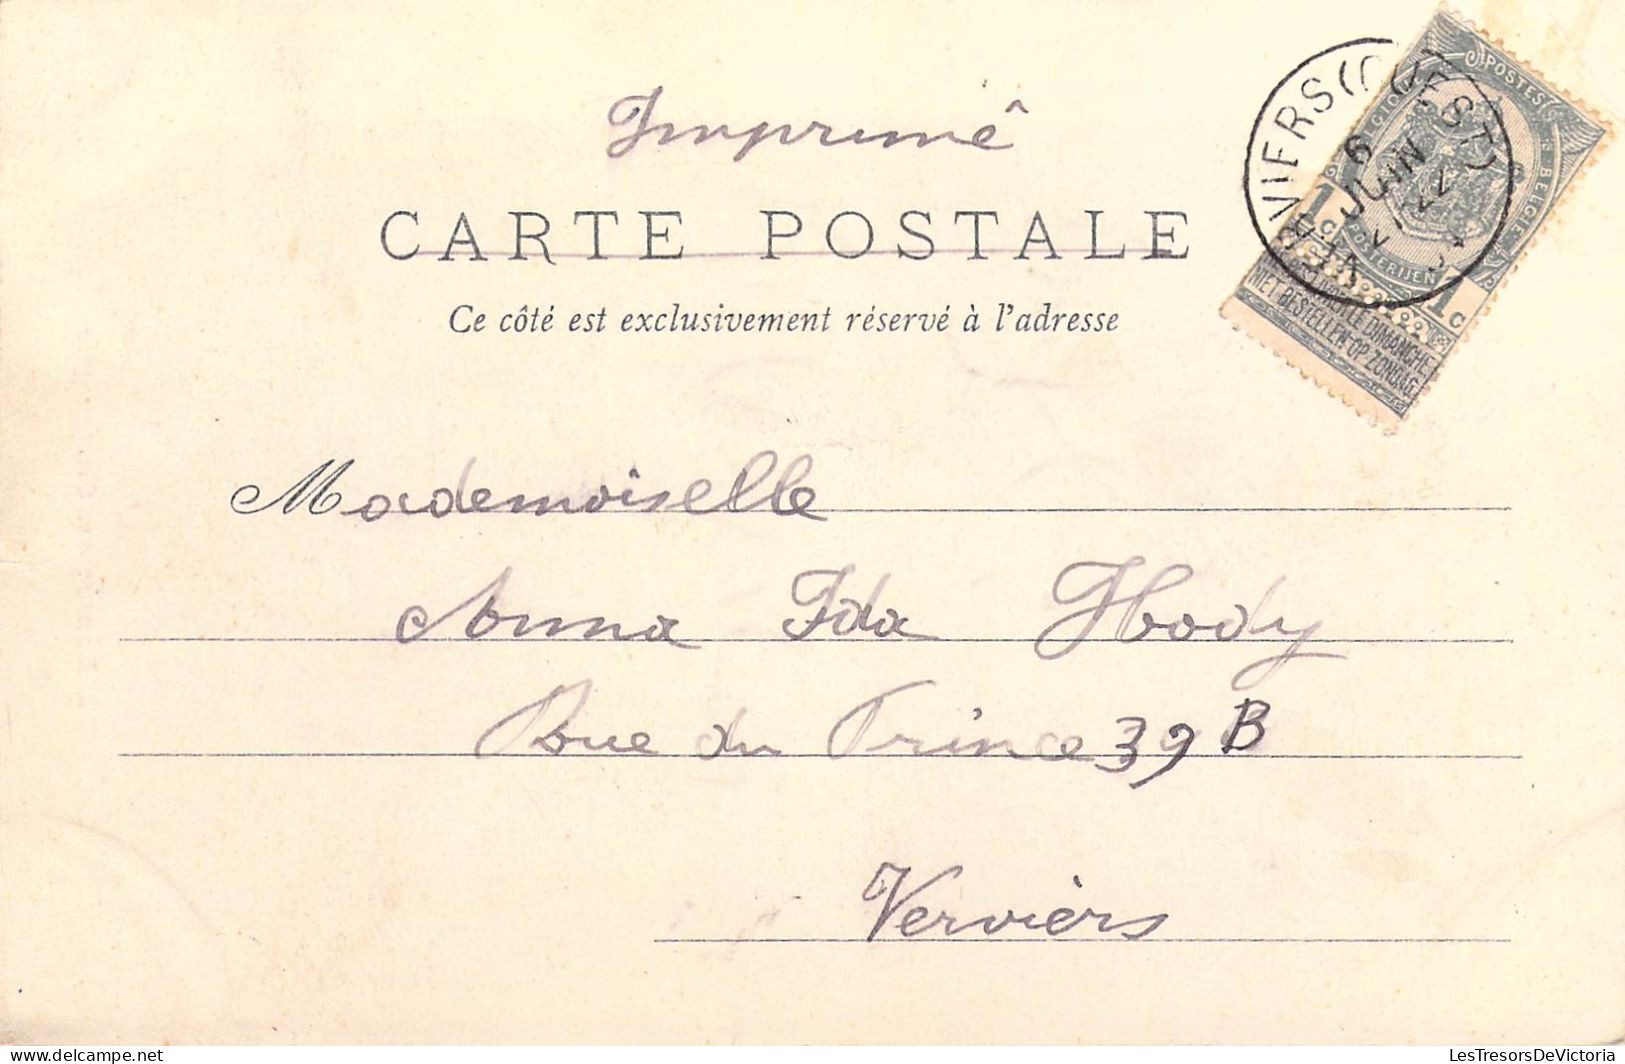 Imprimê
CARTE POSTALE
Ce côté est exclusivement réservé à l'adresse
VERVIERS (OUEST)
6
JUIN
POSTES
BELGIQUE
BELGIE
POSTERIJEN
1c 1c
NE PAS LIVRER LE DIMANCHE
NIET BESTELLEN OP ZONDAG
Mademoiselle
Anna Ida Hody
Rue du Prince 39 B
Verviers
LesTresorsDeVictoria - delcampe.net